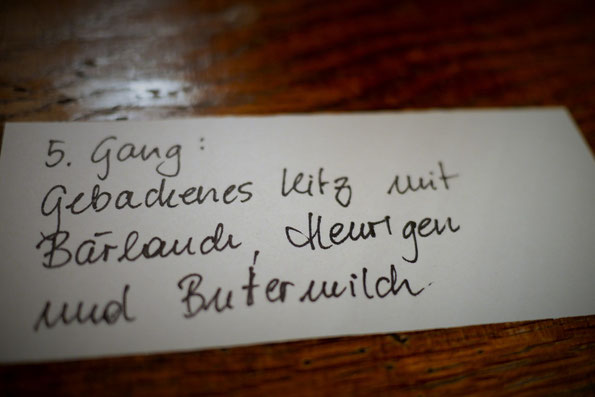 5. Gang:
Gebackenes Kitz mit
Bärlauch, Heurigen
und Butermilch.